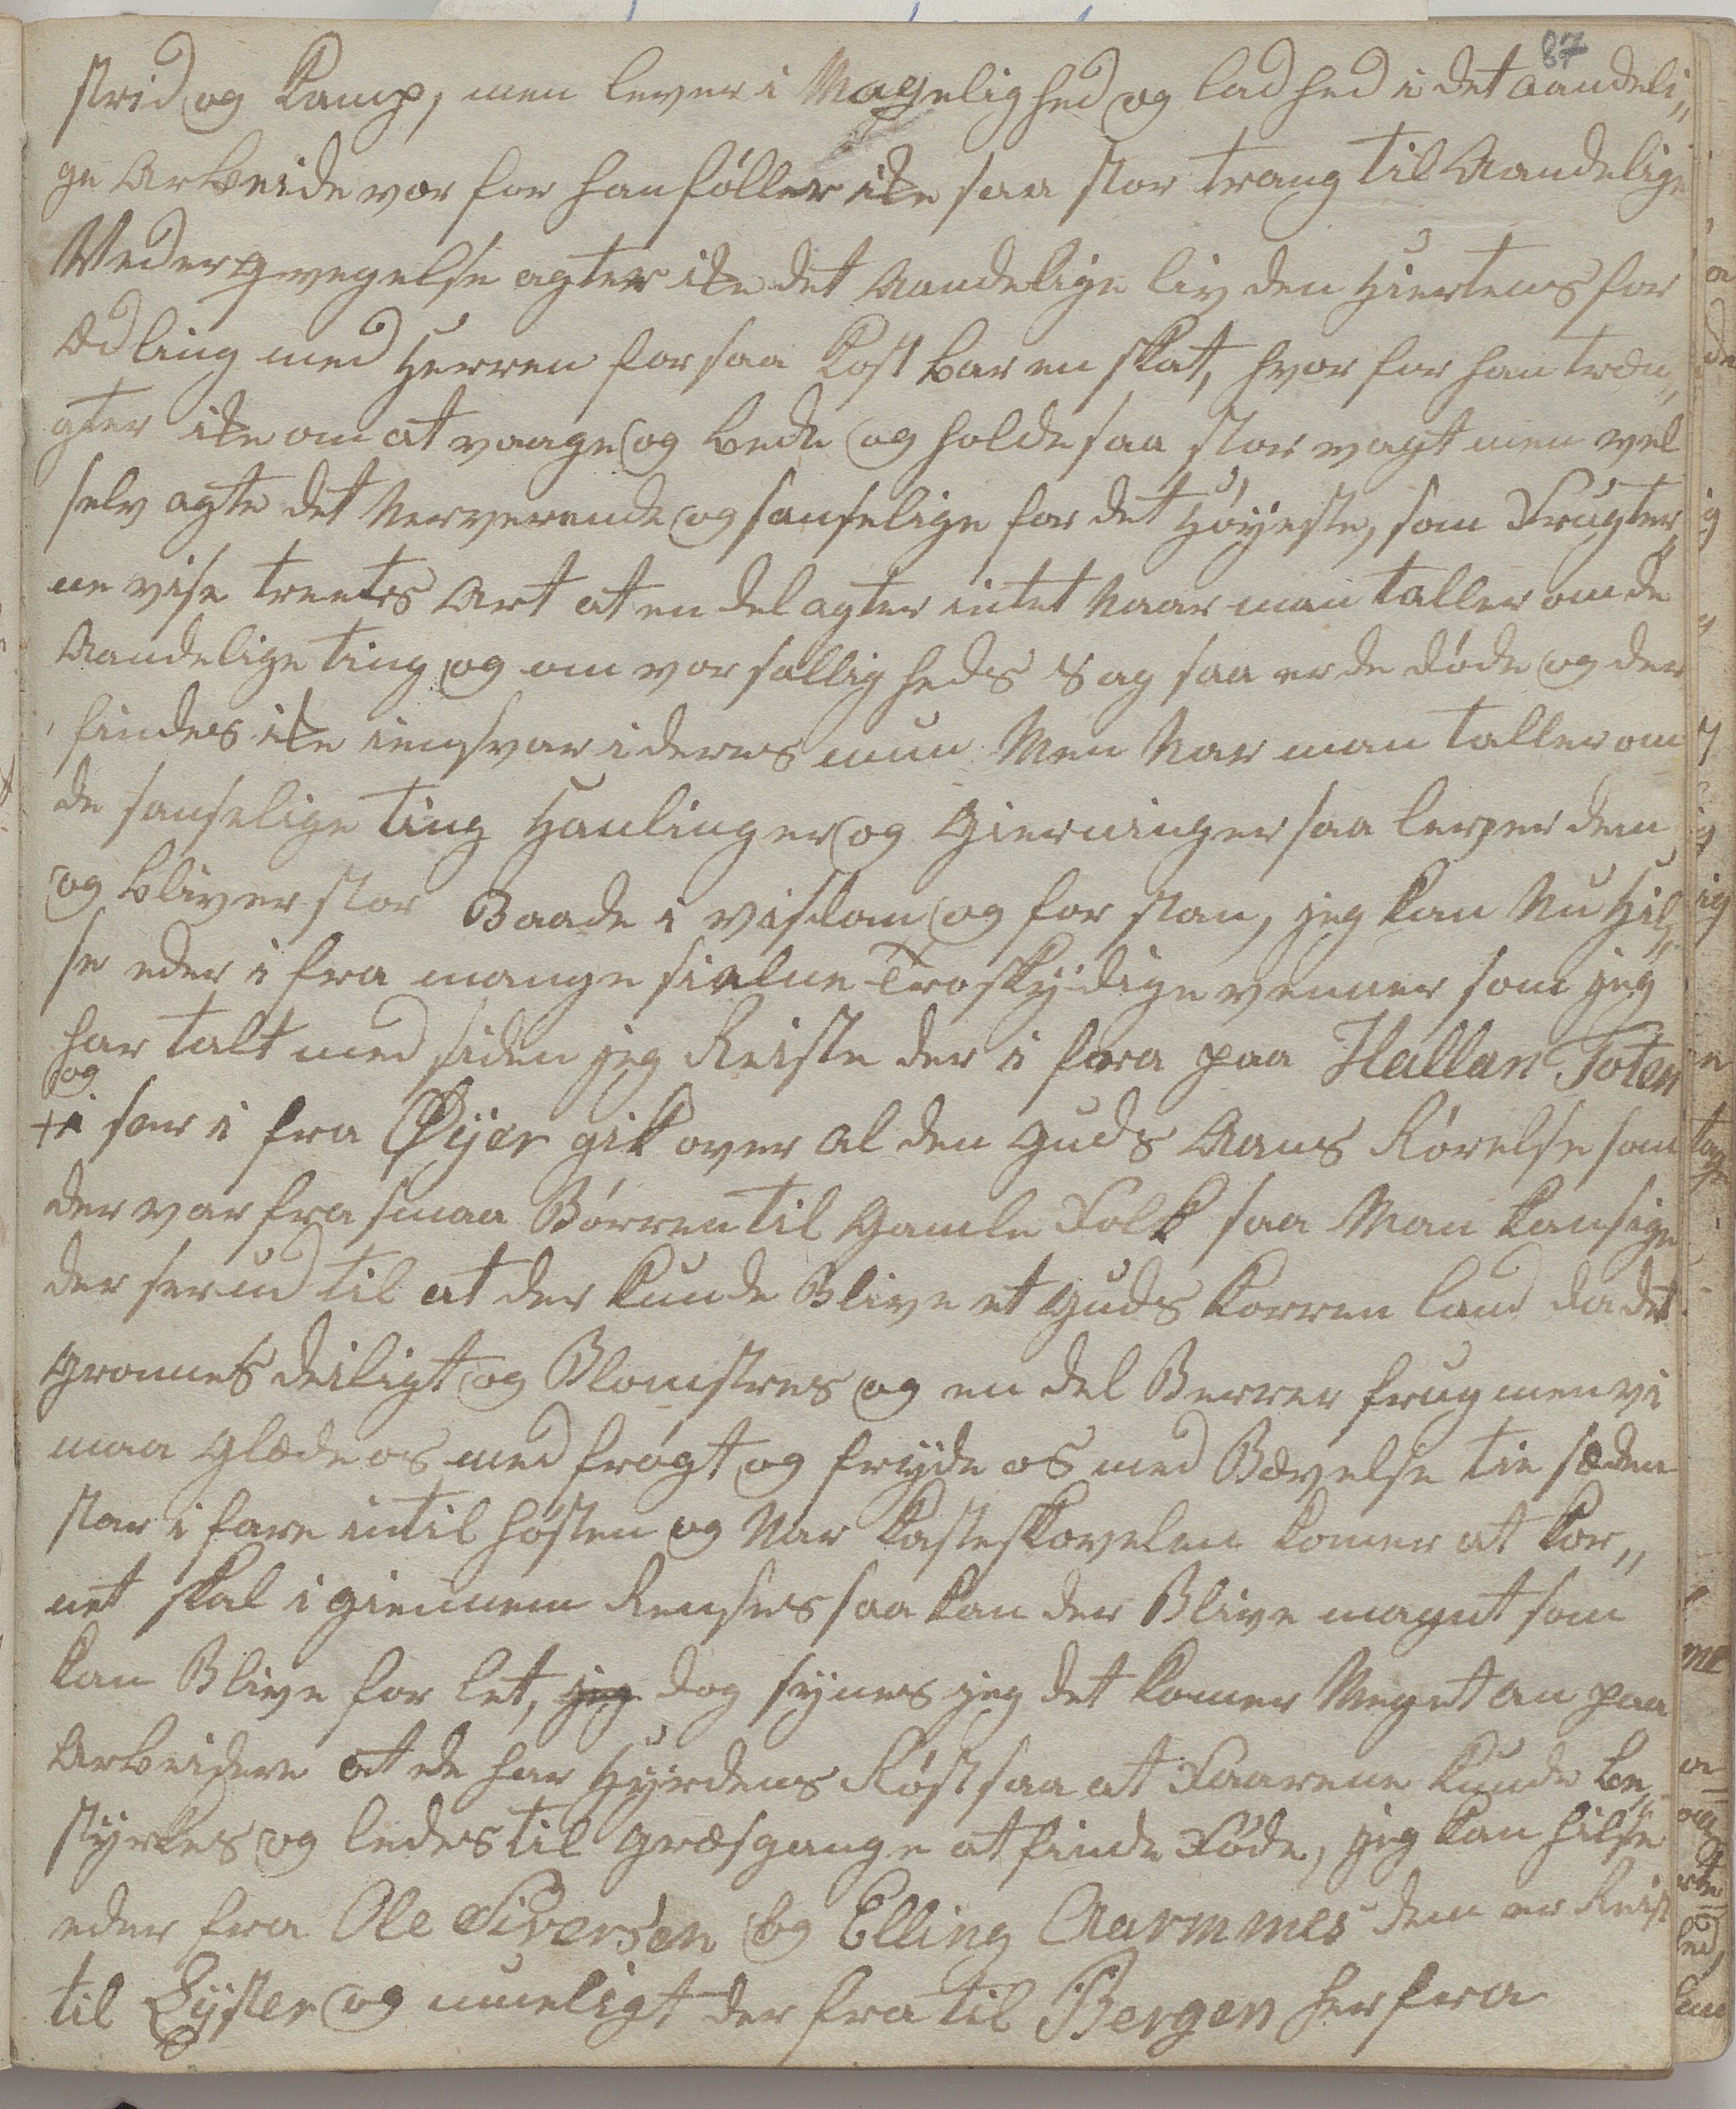 87
strid og Kamp, men lever i Magelighed og ladhed i det aandeli„
ge Arbeide vor for han føller ike saa stor trang til Aandelige
Vedergvegelse agter ike det Aandelige liv den Hiertens for
Ædling med Herren for saa Kost bar en skat, hvor for han træn„
gter ike om at vaage og bede og holde saa stor vagt men vel
selv agte det Nerverende og sanselige for det Høyeste, som Frugter„
ne vise treets Art at en del agter intet Naar man taller om de
Aandelige ting og om vor sallig heds Sag saa er de døde og der
findes ike iensvar i deres mun Men Nar man taller om
de sanselige ting Hanlinger og Gierninger saa lever dem
og bliver stor Baade i visdom og for stan, jeg kan Nu Hil„
se eder i fra mange sielne Troskydige venner som jeg
har talt med siden jeg Reiste der i fra paa Hallan Toten
og
+i sær i fra Øyer gik over al den Guds Aans Rørelse som
der var fra smaa Børren til Gamle Folk saa Man kan sige
der ser ud til at der kunde Blive et Guds korren land da det
Gronnes deiligt og Blomstres og en del Berrer frug men vi
maa Glæde os med frøgt og fryde os med Bævelse tie sæden
star i fare intil høsten og Nar kasteskovelen komer at kor„
net skal i giennem Renses saa kan der Blive magut som
kan Blive for let, jeg dog synes jeg det komer Meget an paa
Arbeidere at de har Hyrdens Røst saa at Faarene kunde be„
styrkes og ledes til græsgange at finde Føde, jeg kan hilse
eder fra Ole Siversen og Elling Aarmmes dem er Reist
til Lyster og mueligt der fra til Bergen her fra